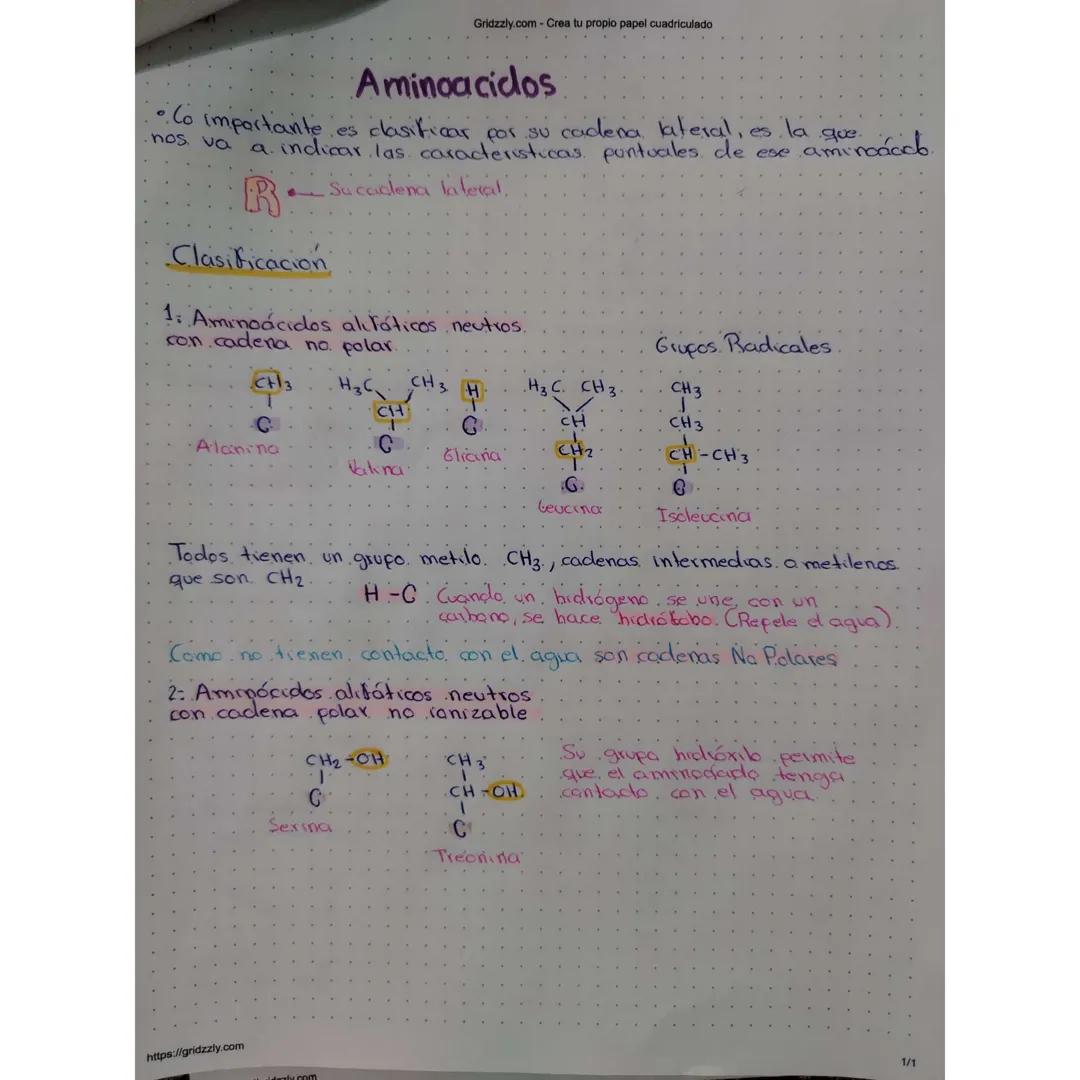 Gridzzly.com - Crea tu propio papel cuadriculado
Aminoacidos
• Lo importante es clasificar por su cadena lateral, es la que
nos va a indicar las caracteristicas puntuales de ese aminoácido.
R Su cadena lateral.
Clasificación
1: Aminoácidos alifáticos neutros
con cadena no polar.
Grupos Radicales
CH3 H3C CH3 H H3C CH3 CH3
CH CH CH3
C C C CH2 CH-CH3
C C
Alanina Valina Glicina
Leucina Isoleucina
Todos tienen un grupo metilo CH3, cadenas intermedias a metilenos
que son CH2
H-C Cuando un hidrógeno se une con un
carbono, se hace hidrófobo. (Repele el agua).
Como no tienen contacto con el agua son cadenas No Polares
2: Aminócidos alifáticos neutros
con cadena polar no ionizable
CH2-OH CH3
C CH-OH
C
Serina
Treonina
Su grupo hidróxilo permite
que el aminoácido tenga
contacto con el agua.
https://gridzzly.com
1/1